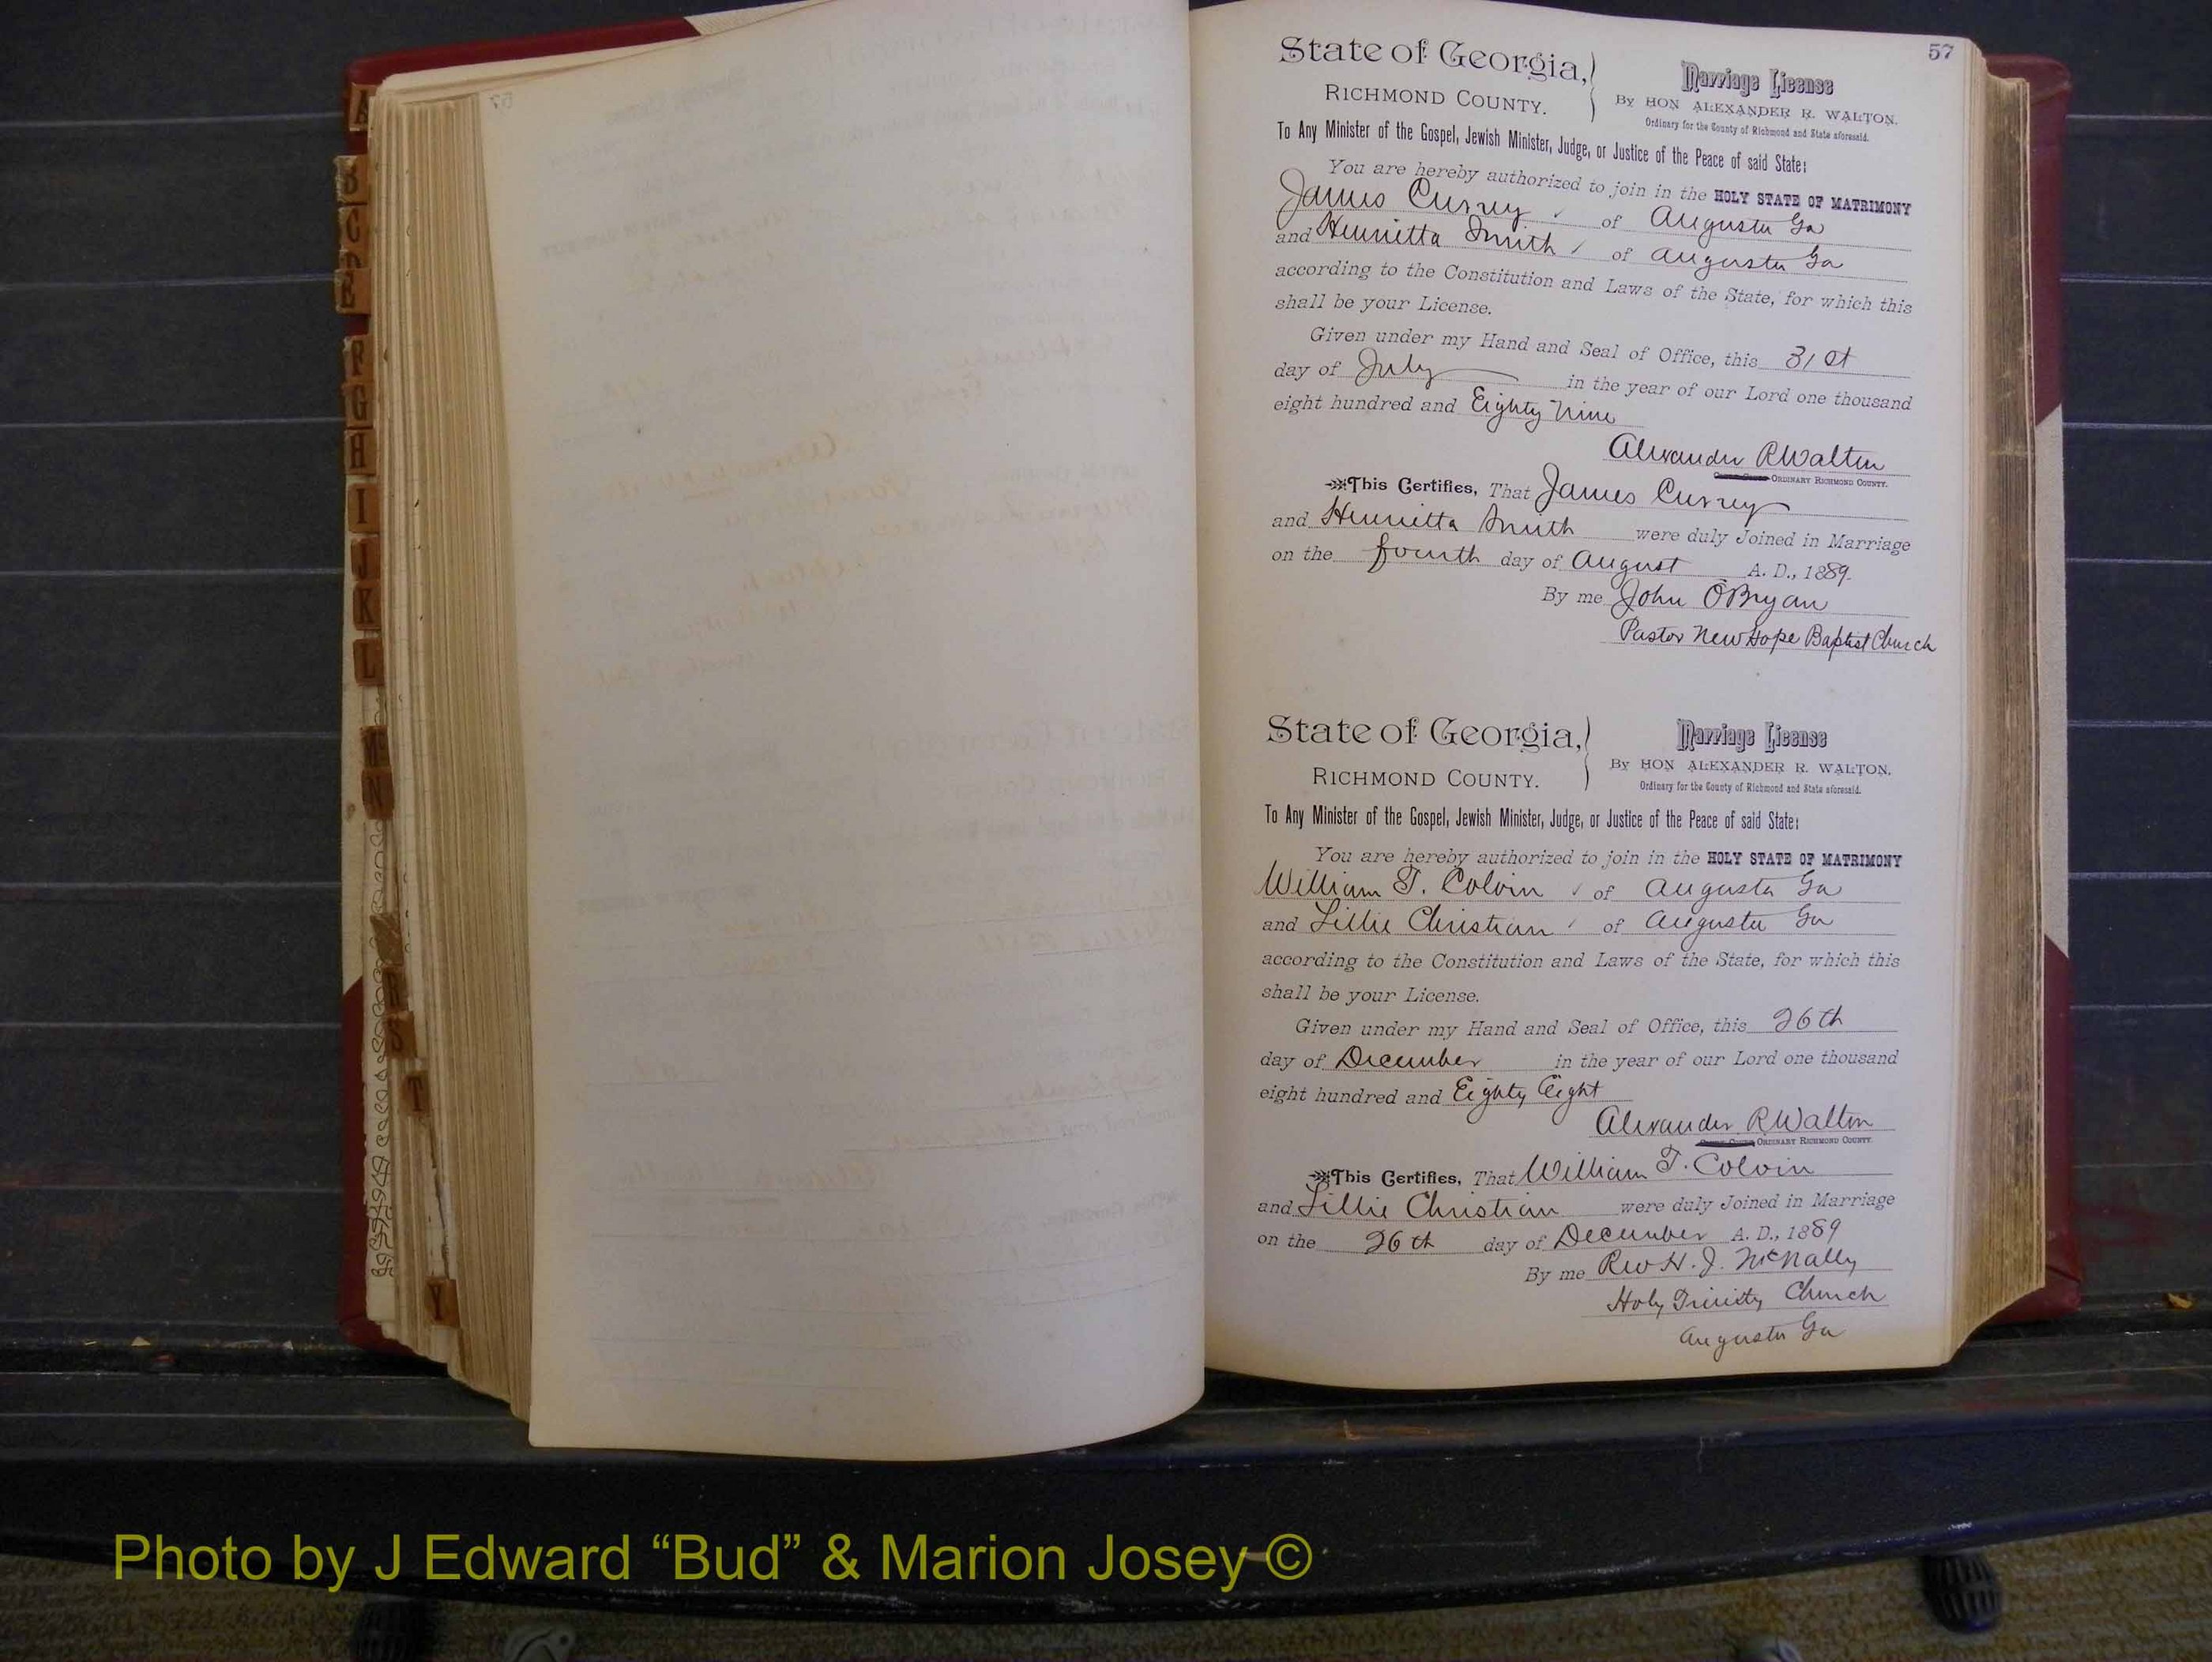 57
State of Georgia,
RICHMOND COUNTY.
Marriage License
By HON ALEXANDER R. WALTON.
Ordinary for the County of Richmond and State aforesaid.
To Any Minister of the Gospel, Jewish Minister, Judge, or Justice of the Peace of said State:
You are hereby authorized to join in the HOLY STATE OF MATRIMONY
James Currey of Augusta Ga
and Henrietta Smith of Augusta Ga
according to the Constitution and Laws of the State, for which this
shall be your License.
Given under my Hand and Seal of Office, this 31st
day of July in the year of our Lord one thousand
eight hundred and Eighty Nine
Alexander R Walton
ORDINARY RICHMOND COUNTY.
This Certifies, That James Currey
and Henrietta Smith were duly Joined in Marriage
on the fourth day of August A. D., 1889.
By me John O'Bryan
Pastor New Hope Baptist Church
State of Georgia,
RICHMOND COUNTY.
Marriage License
By HON ALEXANDER R. WALTON.
Ordinary for the County of Richmond and State aforesaid.
To Any Minister of the Gospel, Jewish Minister, Judge, or Justice of the Peace of said State:
You are hereby authorized to join in the HOLY STATE OF MATRIMONY
William T. Colvin of Augusta Ga
and Lillie Christian of Augusta Ga
according to the Constitution and Laws of the State, for which this
shall be your License.
Given under my Hand and Seal of Office, this 26th
day of December in the year of our Lord one thousand
eight hundred and Eighty Eight
Alexander R Walton
ORDINARY RICHMOND COUNTY.
This Certifies, That William T. Colvin
and Lillie Christian were duly Joined in Marriage
on the 26th day of December A. D., 1889
By me Rev H. J. McNally
Holy Trinity Church
Augusta Ga
A
B
C
D
E
F
G
H
I
J
K
L
Mc
N
R
S
T
Y
Photo by J Edward “Bud” & Marion Josey ©